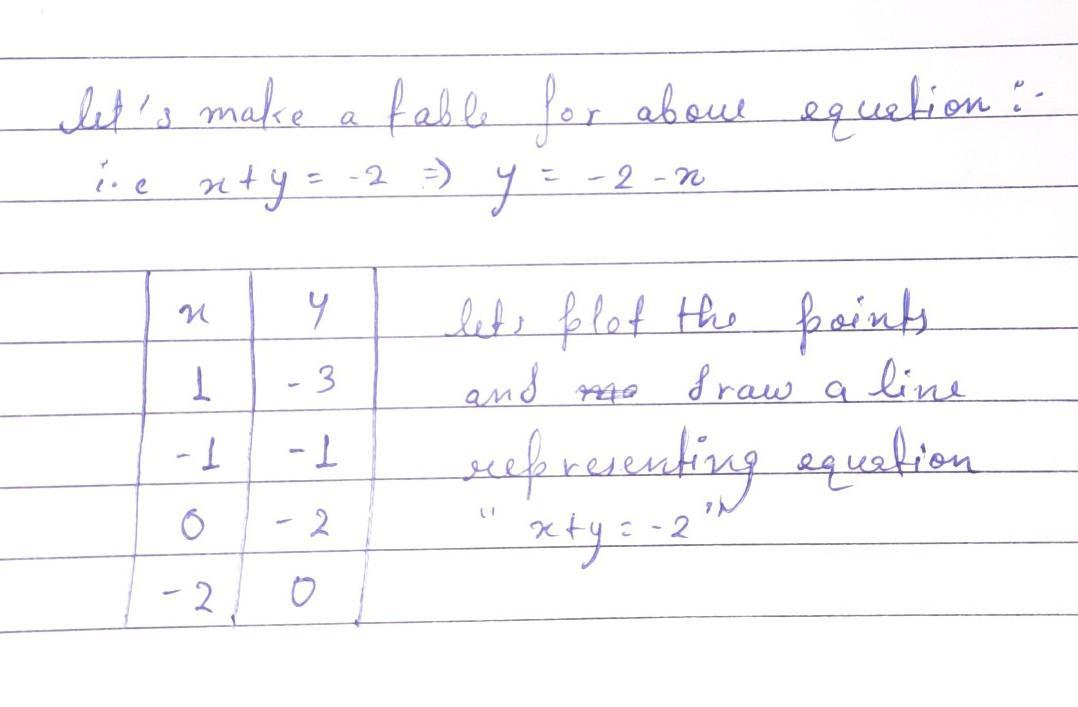 let's make a table for above equation :-
i.e x+y = -2 => y = -2 -x
x y lets plot the points
1 -3 and draw a line
-1 -1 representing equation
0 -2 " x+y = -2 "
-2 0